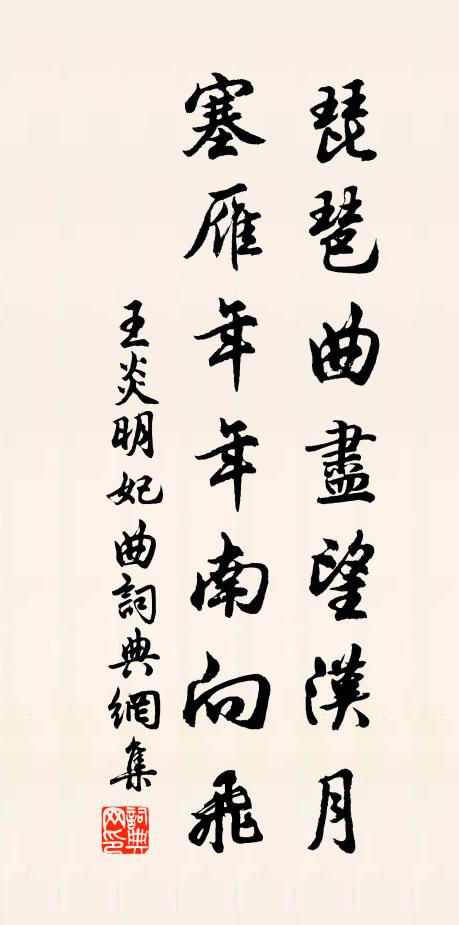 琵琶曲盡望漢月
塞雁年年南向飛
王炎明妃曲詞典網集
詞典网印